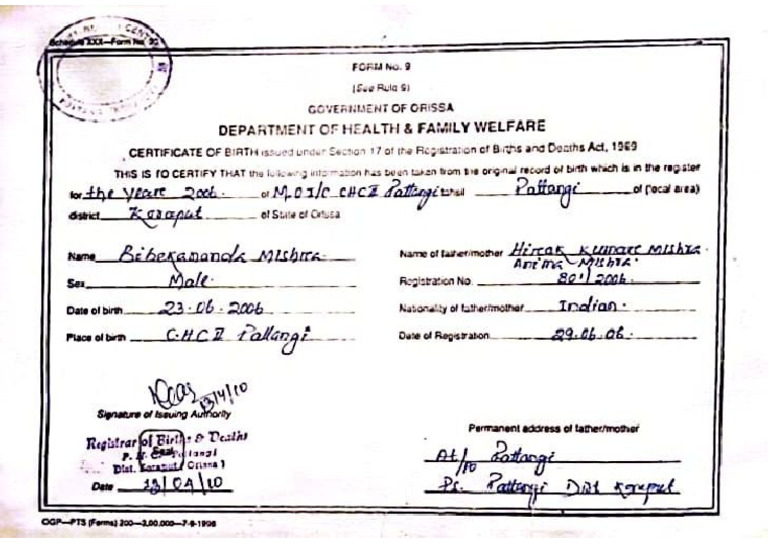 Schedule XXX—Form No.
FORM No. 9
(See Rule 9)
GOVERNMENT OF ORISSA
DEPARTMENT OF HEALTH & FAMILY WELFARE
CERTIFICATE OF BIRTH issued under Section 17 of the Registration of Births and Deaths Act, 1969
THIS IS TO CERTIFY THAT the following information has been taken from the original record of birth which is in the register
for the year 2006. of M.O I/C CHC II Pattangi tahsil Pattangi of (local area)
district Koraput of State of Orissa
Name Bibekananda Mishra Name of father/mother Hirak Kumar Mishra.
Anima Mishra.
Sex Male. Registration No. 80/2006
Date of birth 23.06.2006 Nationality of father/mother Indian.
Place of birth C.H.C II Pattangi Date of Registration 29.06.06.
13/4/10
Signature of Issuing Authority
Registrar of Births & Deaths
Seal
Pottangi
Dist. Koraput (Orissa)
Date 13/04/10
Permanent address of father/mother
At/po Pattangi
Ps. Pattangi Dist Koraput
OGP—PTS (Forms) 200—3,00,000—7-9-1998